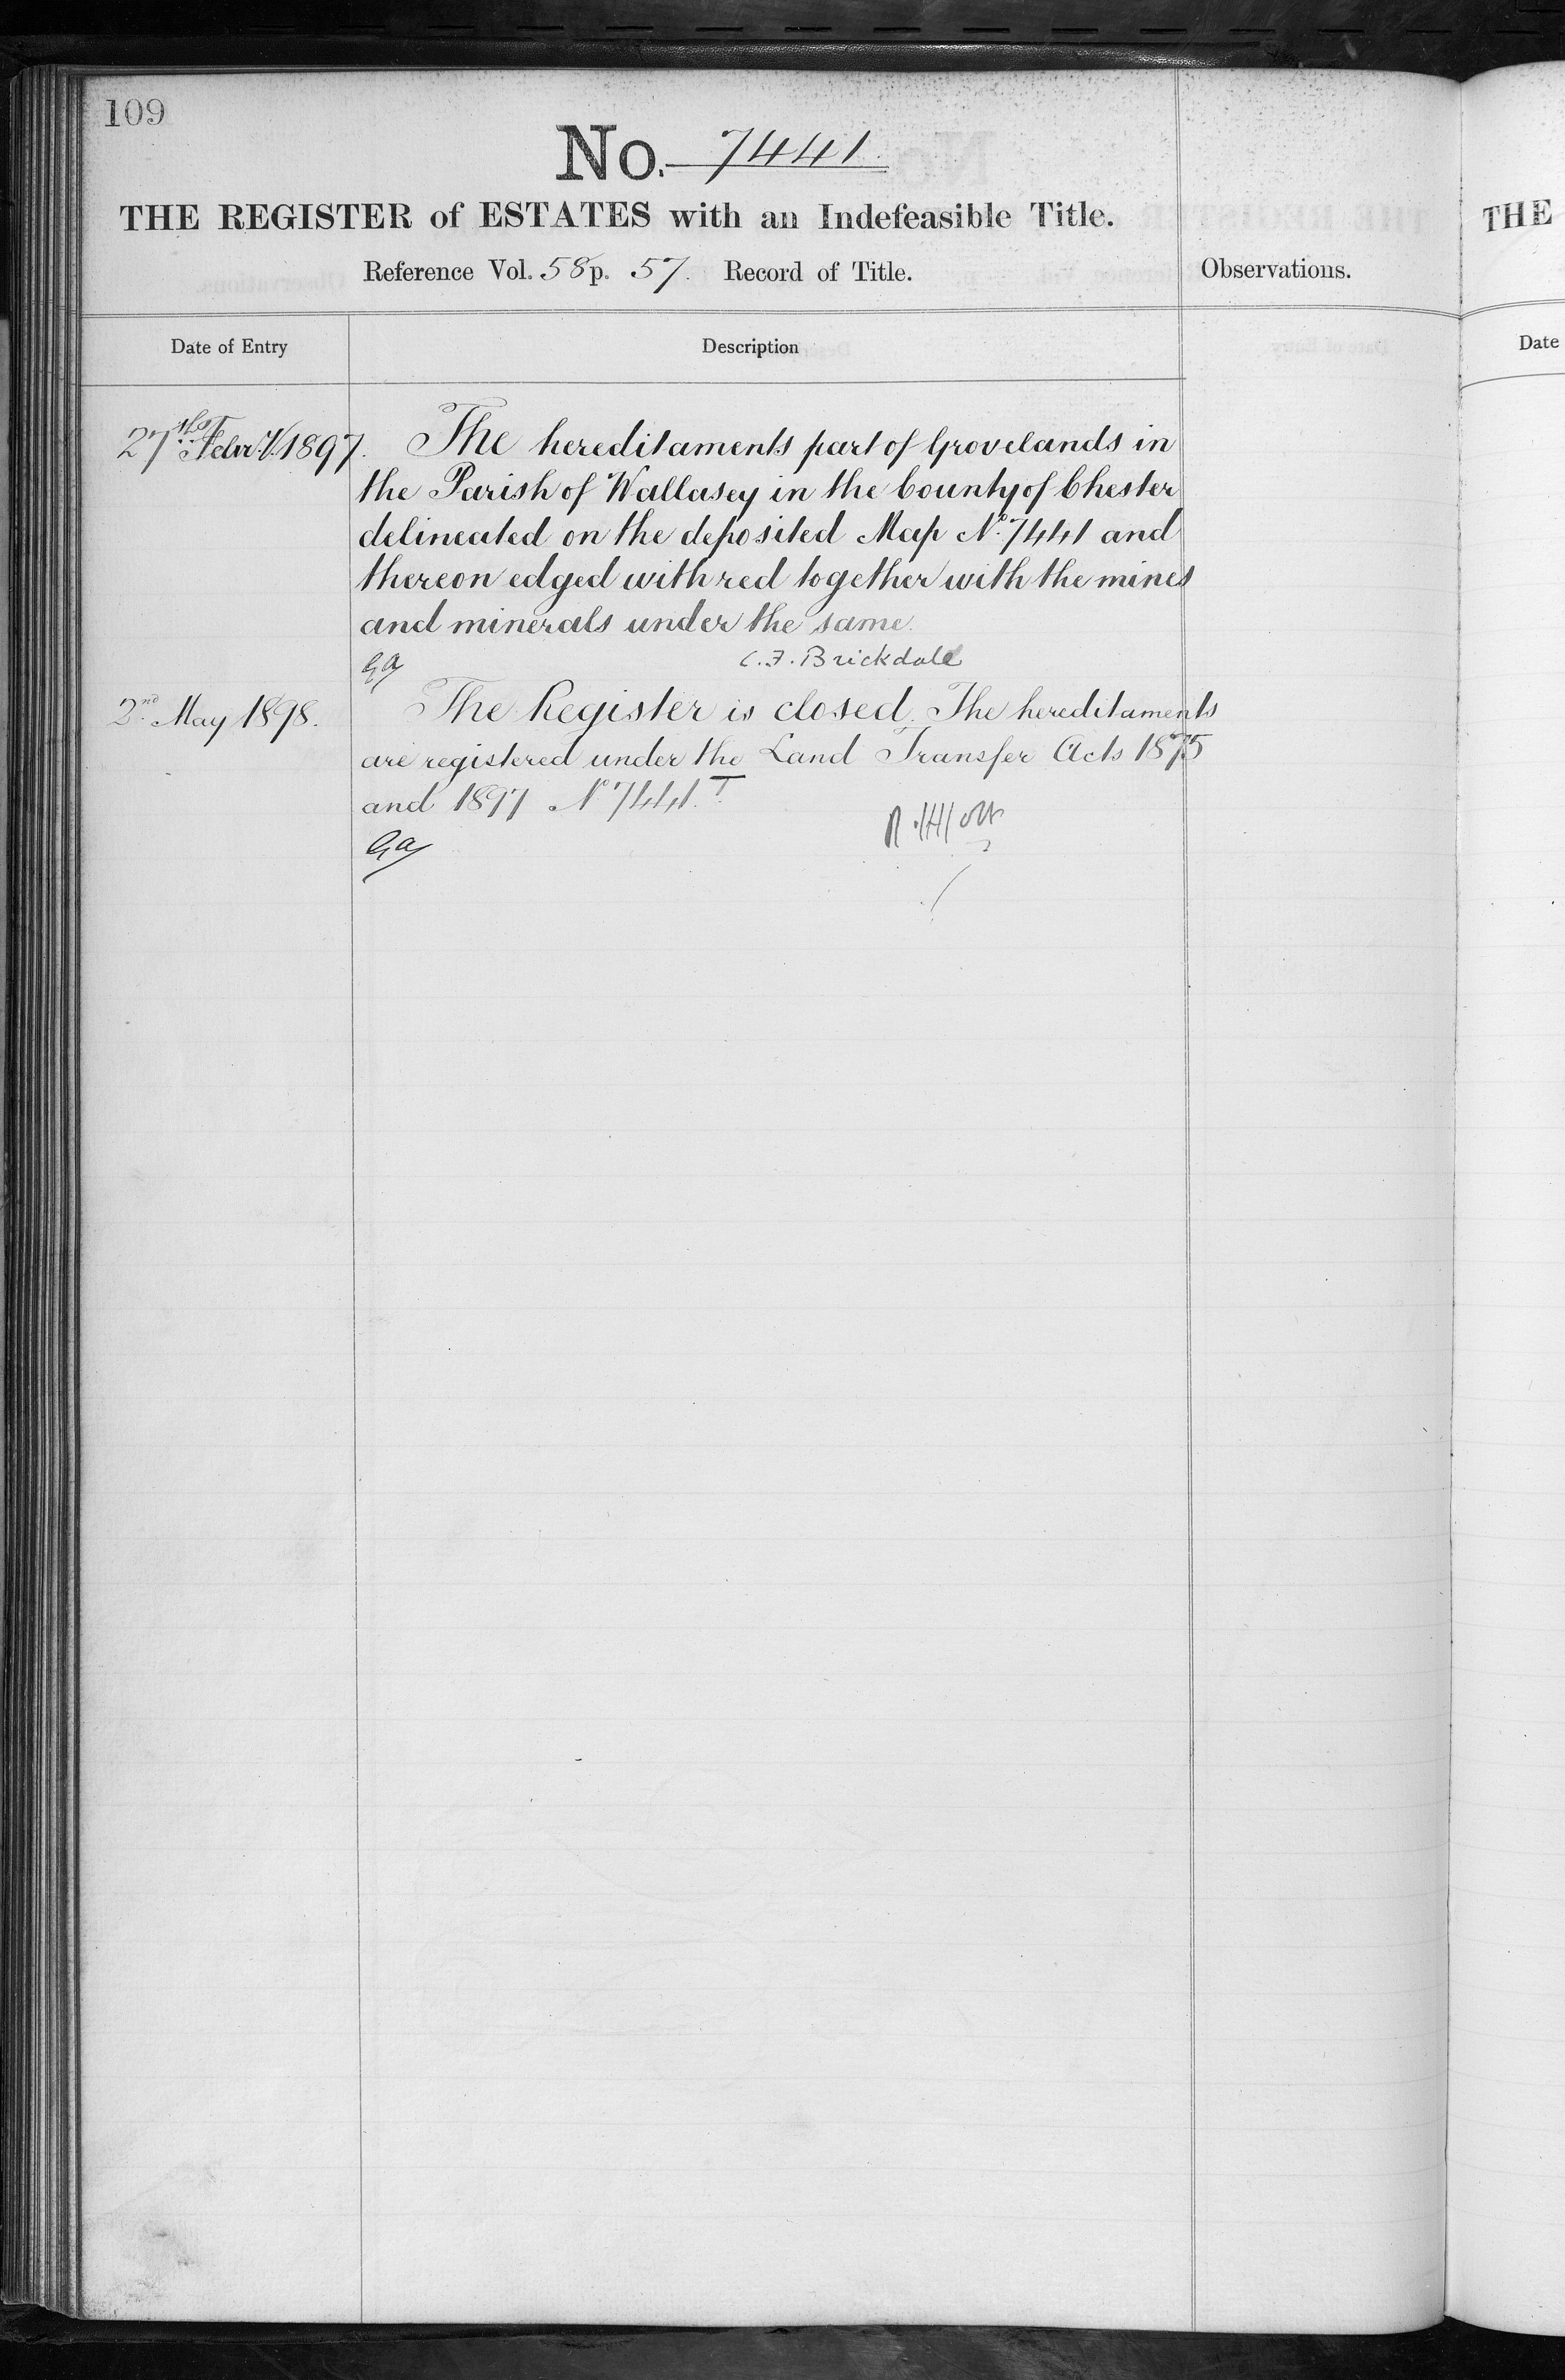 109
No. 7441.
THE REGISTER of ESTATES with an Indefeasible Title.
Reference Vol. 58 p. 57. Record of Title.
Observations.
Date of Entry
Description
27th Febry 1897.
The hereditaments part of Grovelands in
the Parish of Wallasey in the County of Chester
delineated on the deposited Map No. 7441 and
thereon edged with red together with the mines
and minerals under the same.
C.F. Brickdale
2nd May 1898.
The Register is closed. The hereditaments
are registered under the Land Transfer Acts 1875
and 1897 No 7441.T.
THE
Date